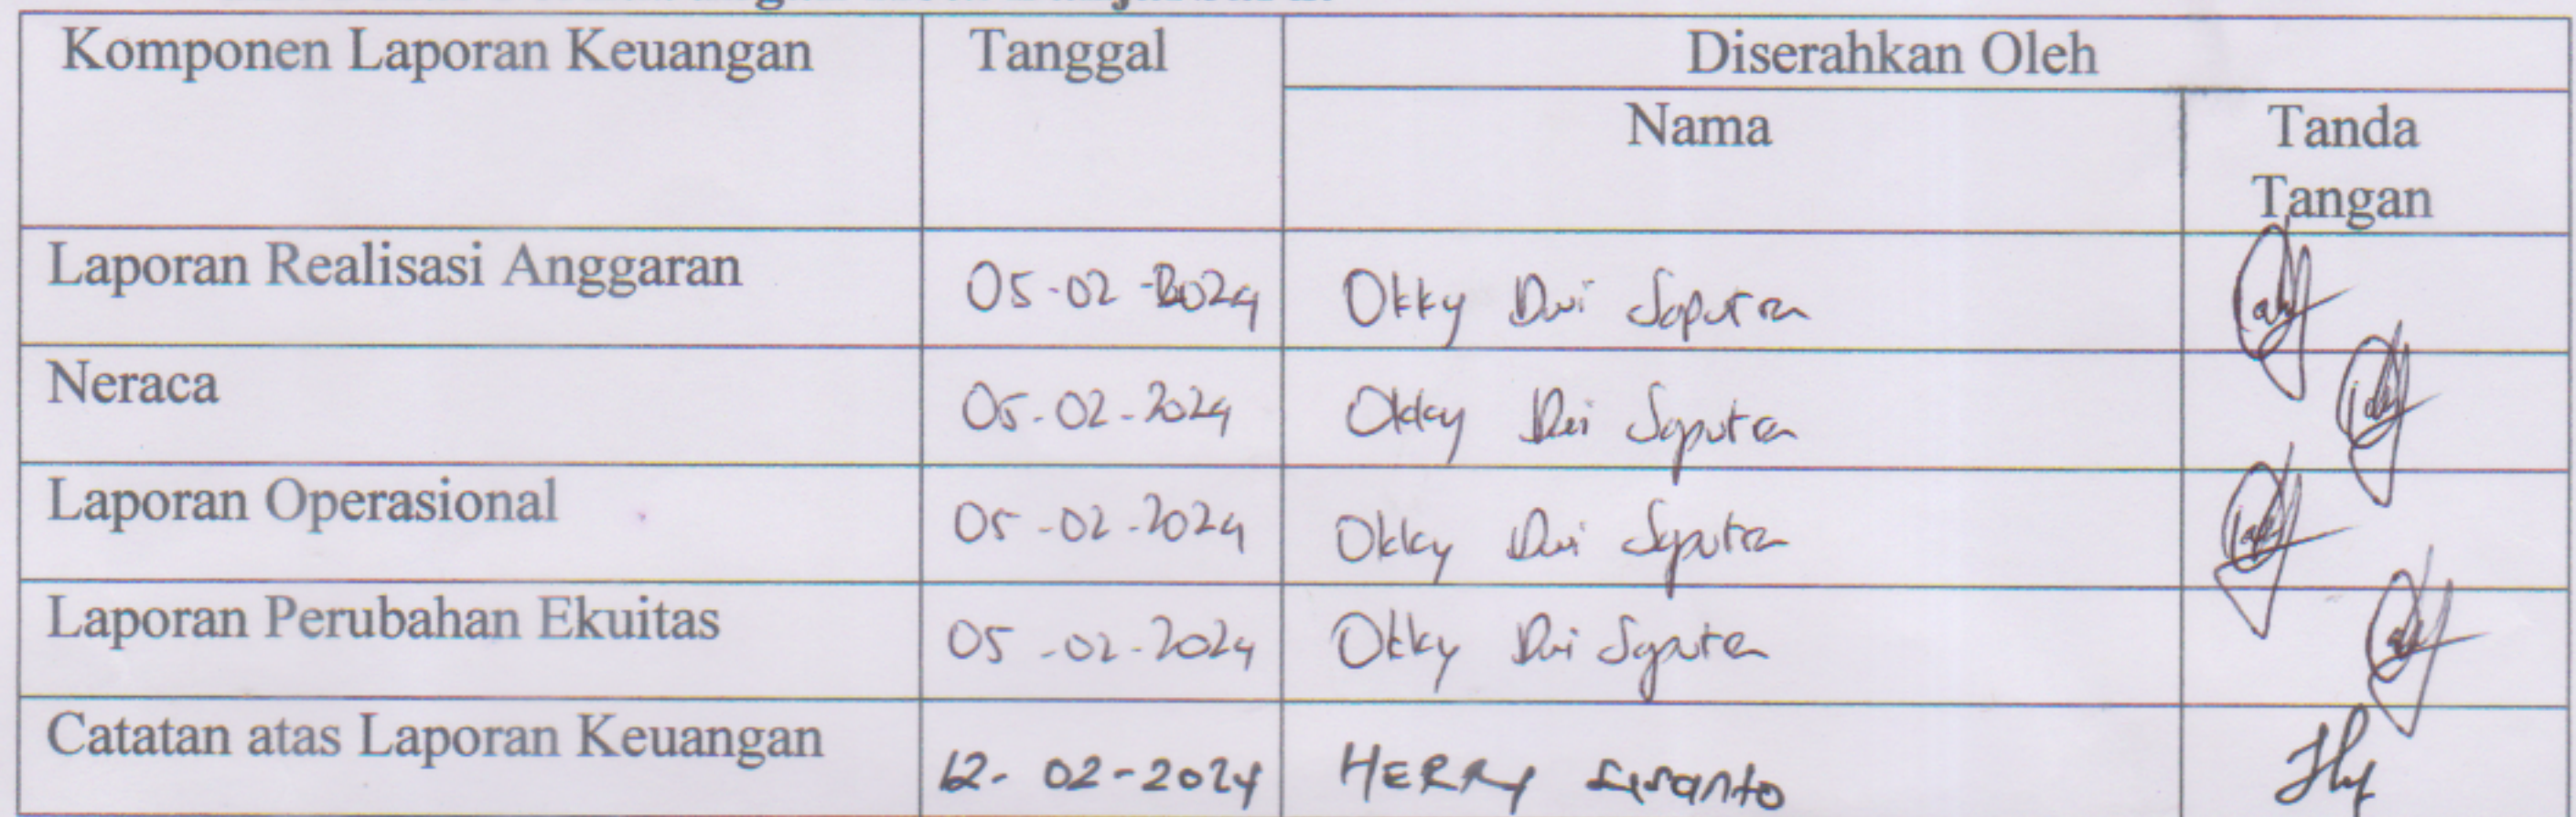 Komponen Laporan Keuangan Tanggal Diserahkan Oleh
Nama Tanda
Tangan
Laporan Realisasi Anggaran 05-02-2024 Okky Dwi Saputra
Neraca 05-02-2024 Okky Dwi Saputra
Laporan Operasional 05-02-2024 Okky Dwi Saputra
Laporan Perubahan Ekuitas 05-02-2024 Okky Dwi Saputra
Catatan atas Laporan Keuangan 12-02-2024 HERRY